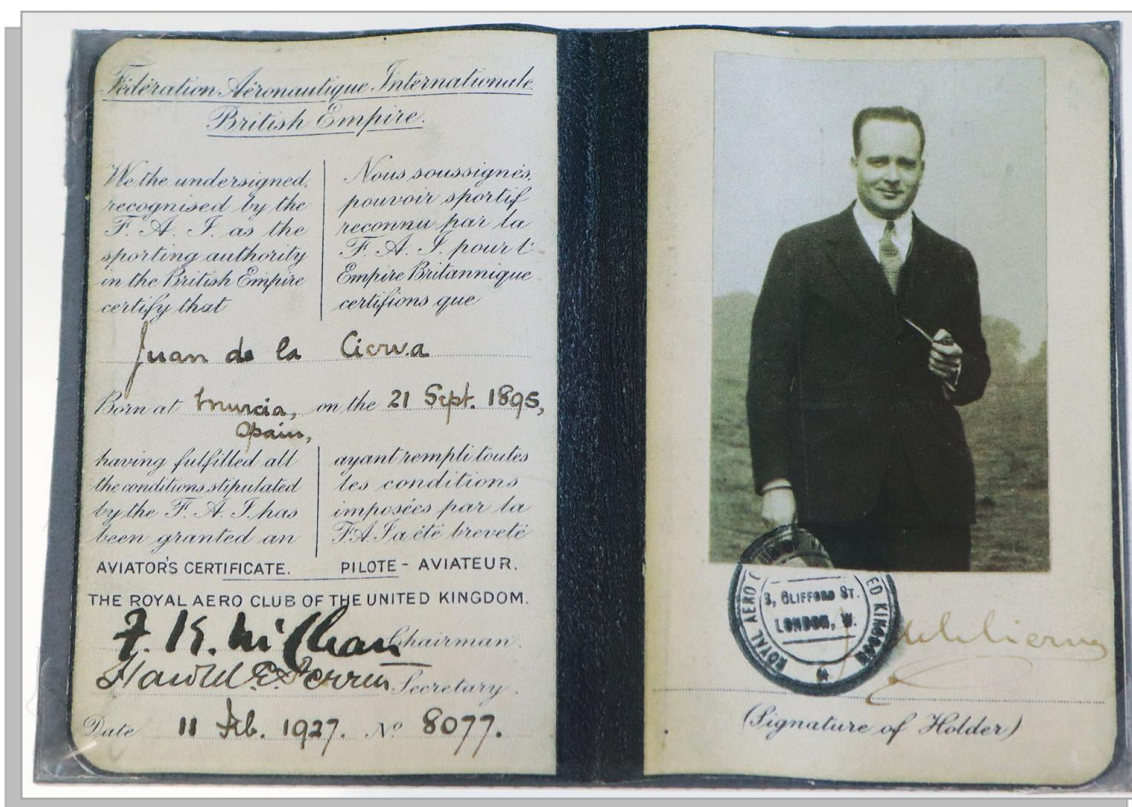 Fédération Aéronautique Internationale
British Empire.
We the undersigned,
recognised by the
F. A. I. as the
sporting authority
in the British Empire
certify that
Nous soussignés,
pouvoir sportif
reconnu par la
F. A. I. pour l'
Empire Britannique
certifions que
Juan de la Cierva
Born at Murcia, on the 21 Sept. 1895,
Spain,
having fulfilled all
the conditions stipulated
by the F. A. I. has
been granted an
ayant rempli toutes
les conditions
imposées par la
F.A.I. a été breveté
AVIATOR'S CERTIFICATE. PILOTE-AVIATEUR.
THE ROYAL AERO CLUB OF THE UNITED KINGDOM.
Chairman.
Harold E. Perrin Secretary.
Date 11 Feb. 1927. No 8077.
ROYAL AERO
ED KINGDOM
3, CLIFFORD ST.
LONDON, W.
Cierva
(Signature of Holder)